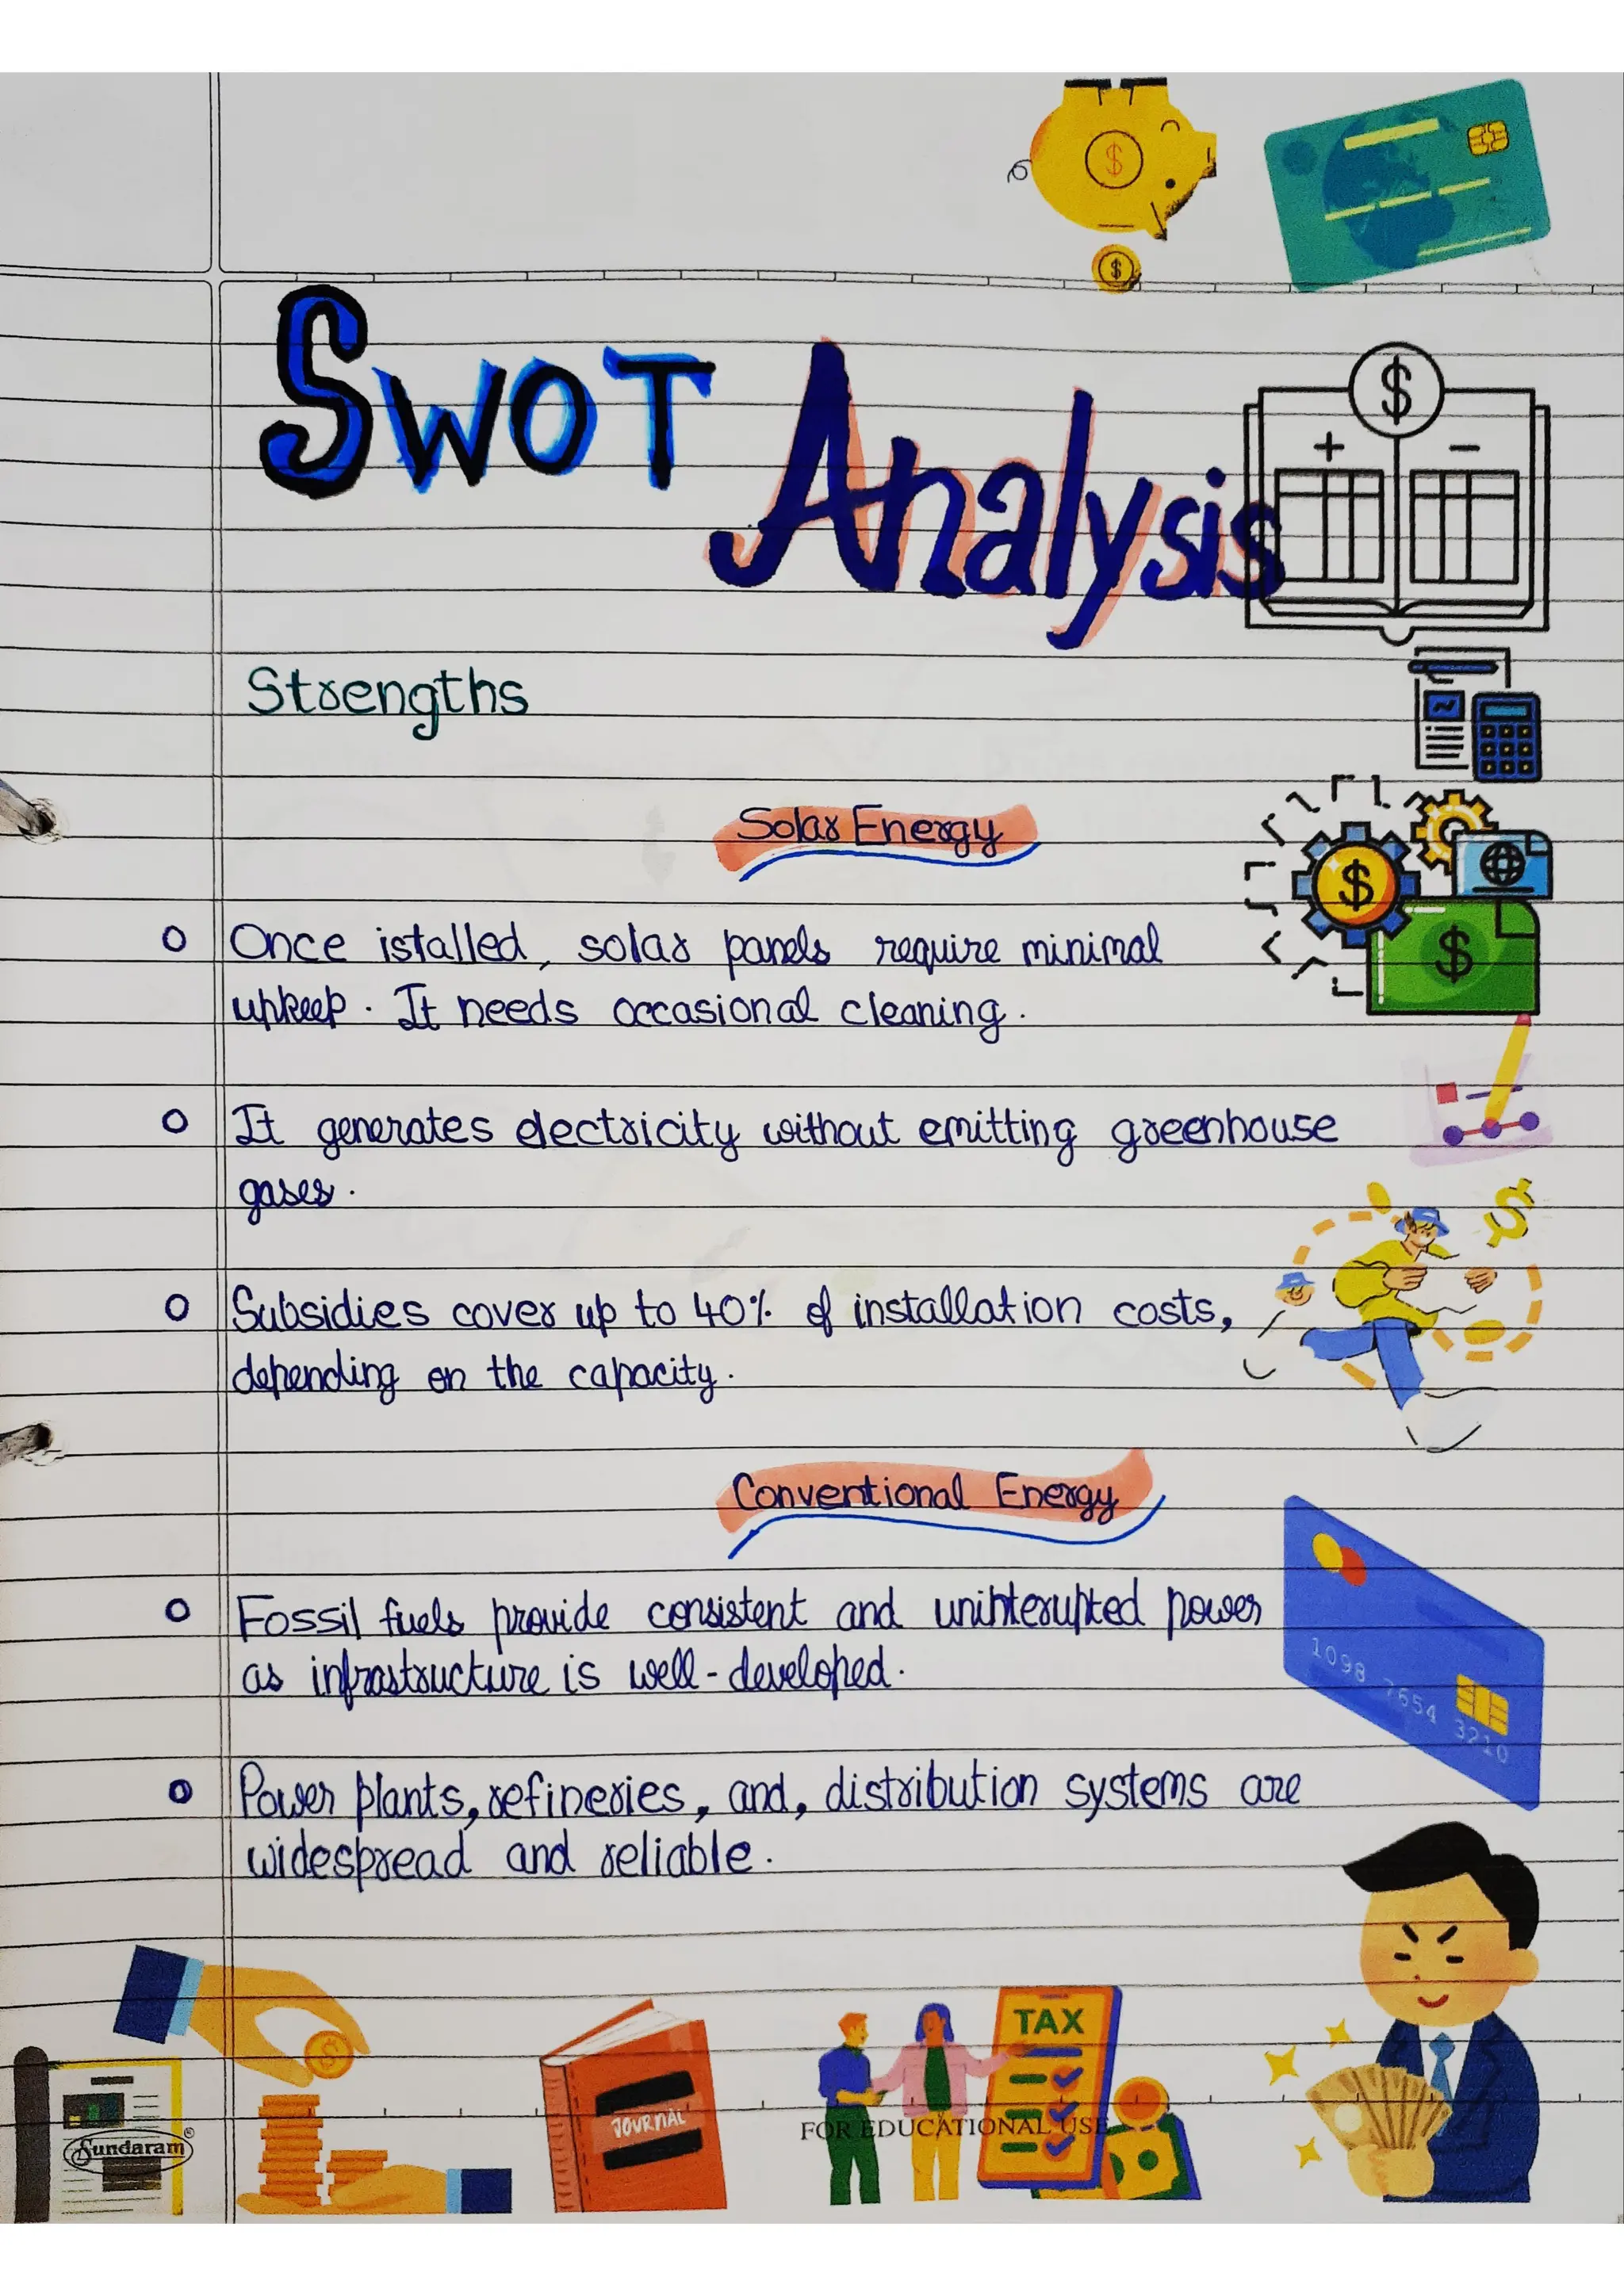 SWOT
Analysis
Strengths
Solar Energy
Once istalled, solar panels require minimal
upkeep. It needs occasional cleaning.
It generates electricity without emitting greenhouse
gases.
Subsidies cover up to 40% of installation costs,
depending on the capacity.
Conventional Energy
Fossil fuels provide consistent and uninterupted power
as infrastructure is well-developed.
1098 7654 3210
Power plants, refineries, and, distribution systems are
widespread and reliable.
TAX
JOURNAL
FOR EDUCATIONAL USE
Sundaram®